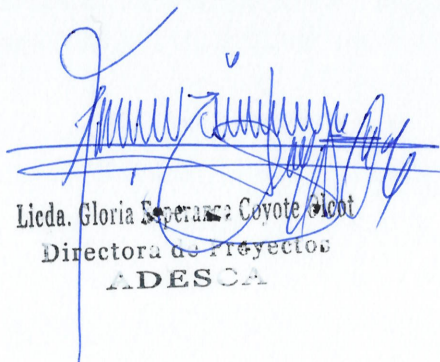 Licda. Gloria Esperanza Coyote Olcot
Directora de Proyectos
ADESCA